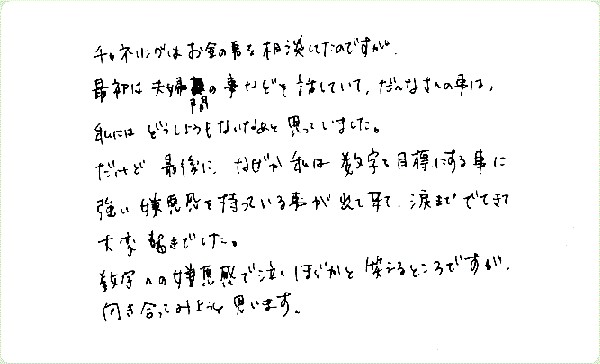 チャネリングはお金の事を相談したのですが、
最初は夫婦間の事などを話していて、だんなさんの事は、
私にはどうしようもないなあと思っていました。
だけど最後に、なぜか私は数字を目標にする事に
強い嫌悪感を持っている事が出て来て、涙まででてきて
大変驚きでした。
数字への嫌悪感で泣くほどかと笑えるところですが、
向き合ってみようと思います。